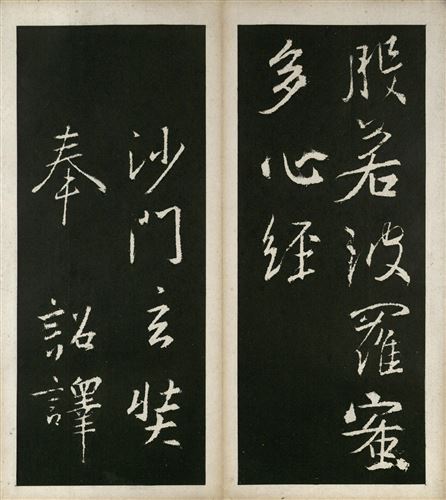 般若波羅蜜
多心經
沙門玄奘
奉 詔譯